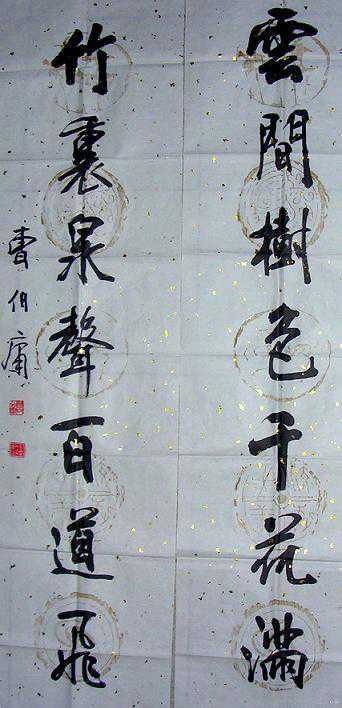 雲間樹色千花滿
竹裏泉聲百道飛
曹伯庸